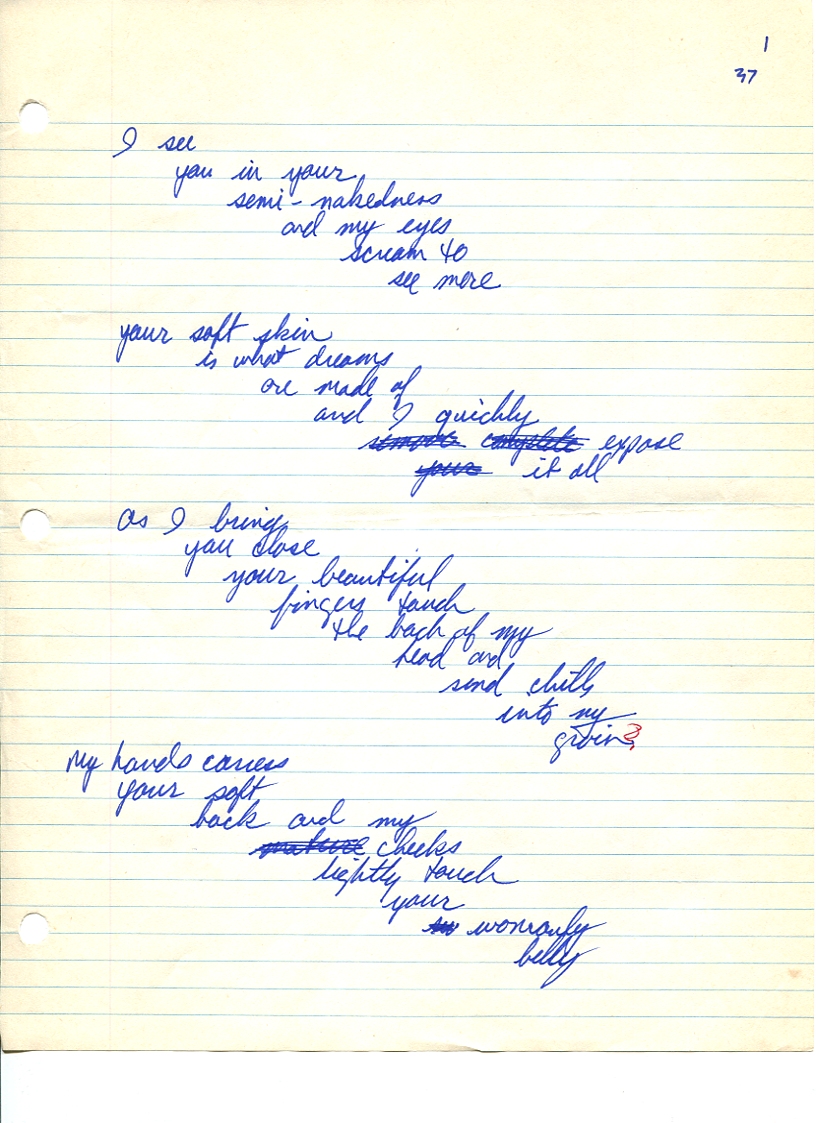 1
37
I see
you in your
semi-nakedness
and my eyes
scream to
see more
your soft skin
is what dreams
are made of
and I quickly
remove complete expose
your it all
As I bring
you close
your beautiful
fingers touch
the back of my
head and
send chills
into my
groin
My hands caress
your soft
back and my
mature cheeks
lightly touch
your
womanly
belly